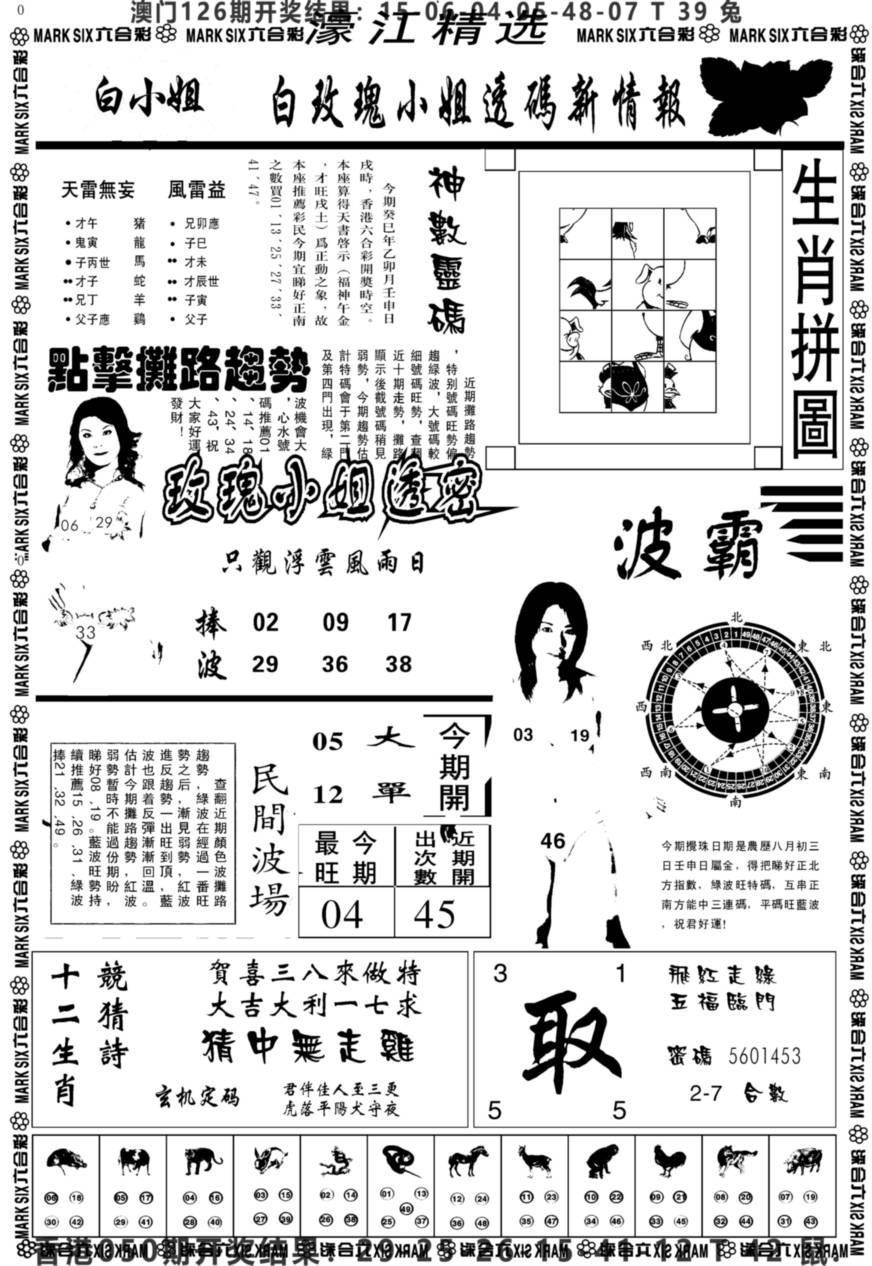 0
澳门126期开奖结果：15-06-04-05-48-07 T 39 兔
MARK SIX六合彩 MARK SIX六合彩 濠江精选 MARK SIX六合彩 MARK SIX六合彩
白小姐 白玫瑰小姐透碼新情報
天雷無妄 風雷益
• 才午 豬 • 兄卯應
• 鬼寅 龍 • 子巳
● 子丙世 馬 •• 才未
•• 才子 蛇 •• 才辰世
•• 兄丁 羊 •• 子寅
• 父子應 鷄 • 父子
神數靈碼
今期癸巳年乙卯月壬申日
戌時，香港六合彩開獎時空。
本座算得天書啓示（福神午金
，才旺戌土）爲正動之象，故
本座推薦彩民今期宜睇好正南
之數買01、13、25、27、33、
41、47。
生肖拼圖
點擊攤路趨勢
近期攤路趨勢
，特别號碼旺勢偏
趨緑波，大號碼較
細號碼旺勢，查翻
近十期走勢，攤路
顯示後截號碼稍見
弱勢，今期趨勢估
計特碼會于第二門
及第四門出現，緑
波機會大
，心水號
碼推薦01
、14、18
、24、34
、43，祝
大家好運
發財！
玫瑰小姐透密
06 29
33
只觀浮雲風雨日
捧 02 09 17
波 29 36 38
波霸
03 19
46
北
西北 東北
西 東
西南 東南
南
今期攪珠日期是農歷八月初三
日壬申日屬金，得把睇好正北
方指數，緑波旺特碼，互串正
南方能中三連碼，平碼旺藍波
，祝君好運!
查翻近期顏色攤路
趨勢，緑波在經過一波旺
勢之后，漸見弱勢，紅番
進反趨勢一出旺到頂，藍波
波也跟着反彈漸漸回温。
估計今期攤路趨勢紅波
弱勢暫時不能過份期盼，
睇好08、19。藍波旺勢持
續推薦15、26、31，緑波
捧21、32、49。
民間波場
05 大
12 單
今期開
今期最旺
04
近期開出次數
45
十二生肖
競猜詩
賀喜三八來做特
大吉大利一七求
猜中無走雞
玄机定码
君伴佳人至三更
虎落平陽犬守夜
3 1
取
5 5
飛紅走緑
五福臨門
密碼 5601453
2-7 合數
06 18 05 17 04 16 03 15 02 14 01 13 12 24 11 23 10 22 09 21 08 20 07 19
30 42 29 41 28 40 27 39 26 38 49 25 37 36 48 35 47 34 46 33 45 32 44 31 43
香港050期开奖结果：29-25-26-15-41-12 T 42 鼠